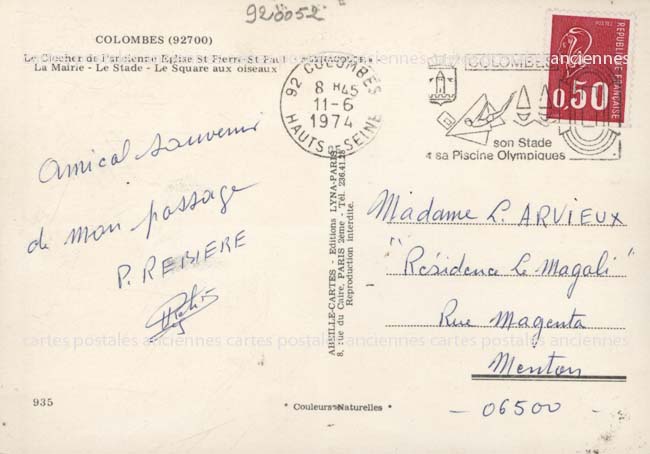 920052
COLOMBES (92700)
Le Clocher de l'ancienne Eglise St-Pierre-St-Paul
La Mairie - Le Stade - Le Square aux oiseaux
92 COLOMBES
8 H45
11-6
1974
HAUTS DE SEINE
COLOMBES
son Stade
sa Piscine Olympiques
REPUBLIQUE FRANÇAISE
0,50
Amical souvenir
de mon passage
P. REBIERE
ABEILLE-CARTES - Editions LYNA-PARIS
8, rue du Caire, PARIS 2ème - Tél. 236.41.28
Reproduction interdite.
Madame L. ARVIEUX
"Résidence Le Magali"
Rue Magenta
Menton
- 06500 -
cartes postales anciennes cartes postales anciennes cartes postales anciennes
935
* Couleurs Naturelles *